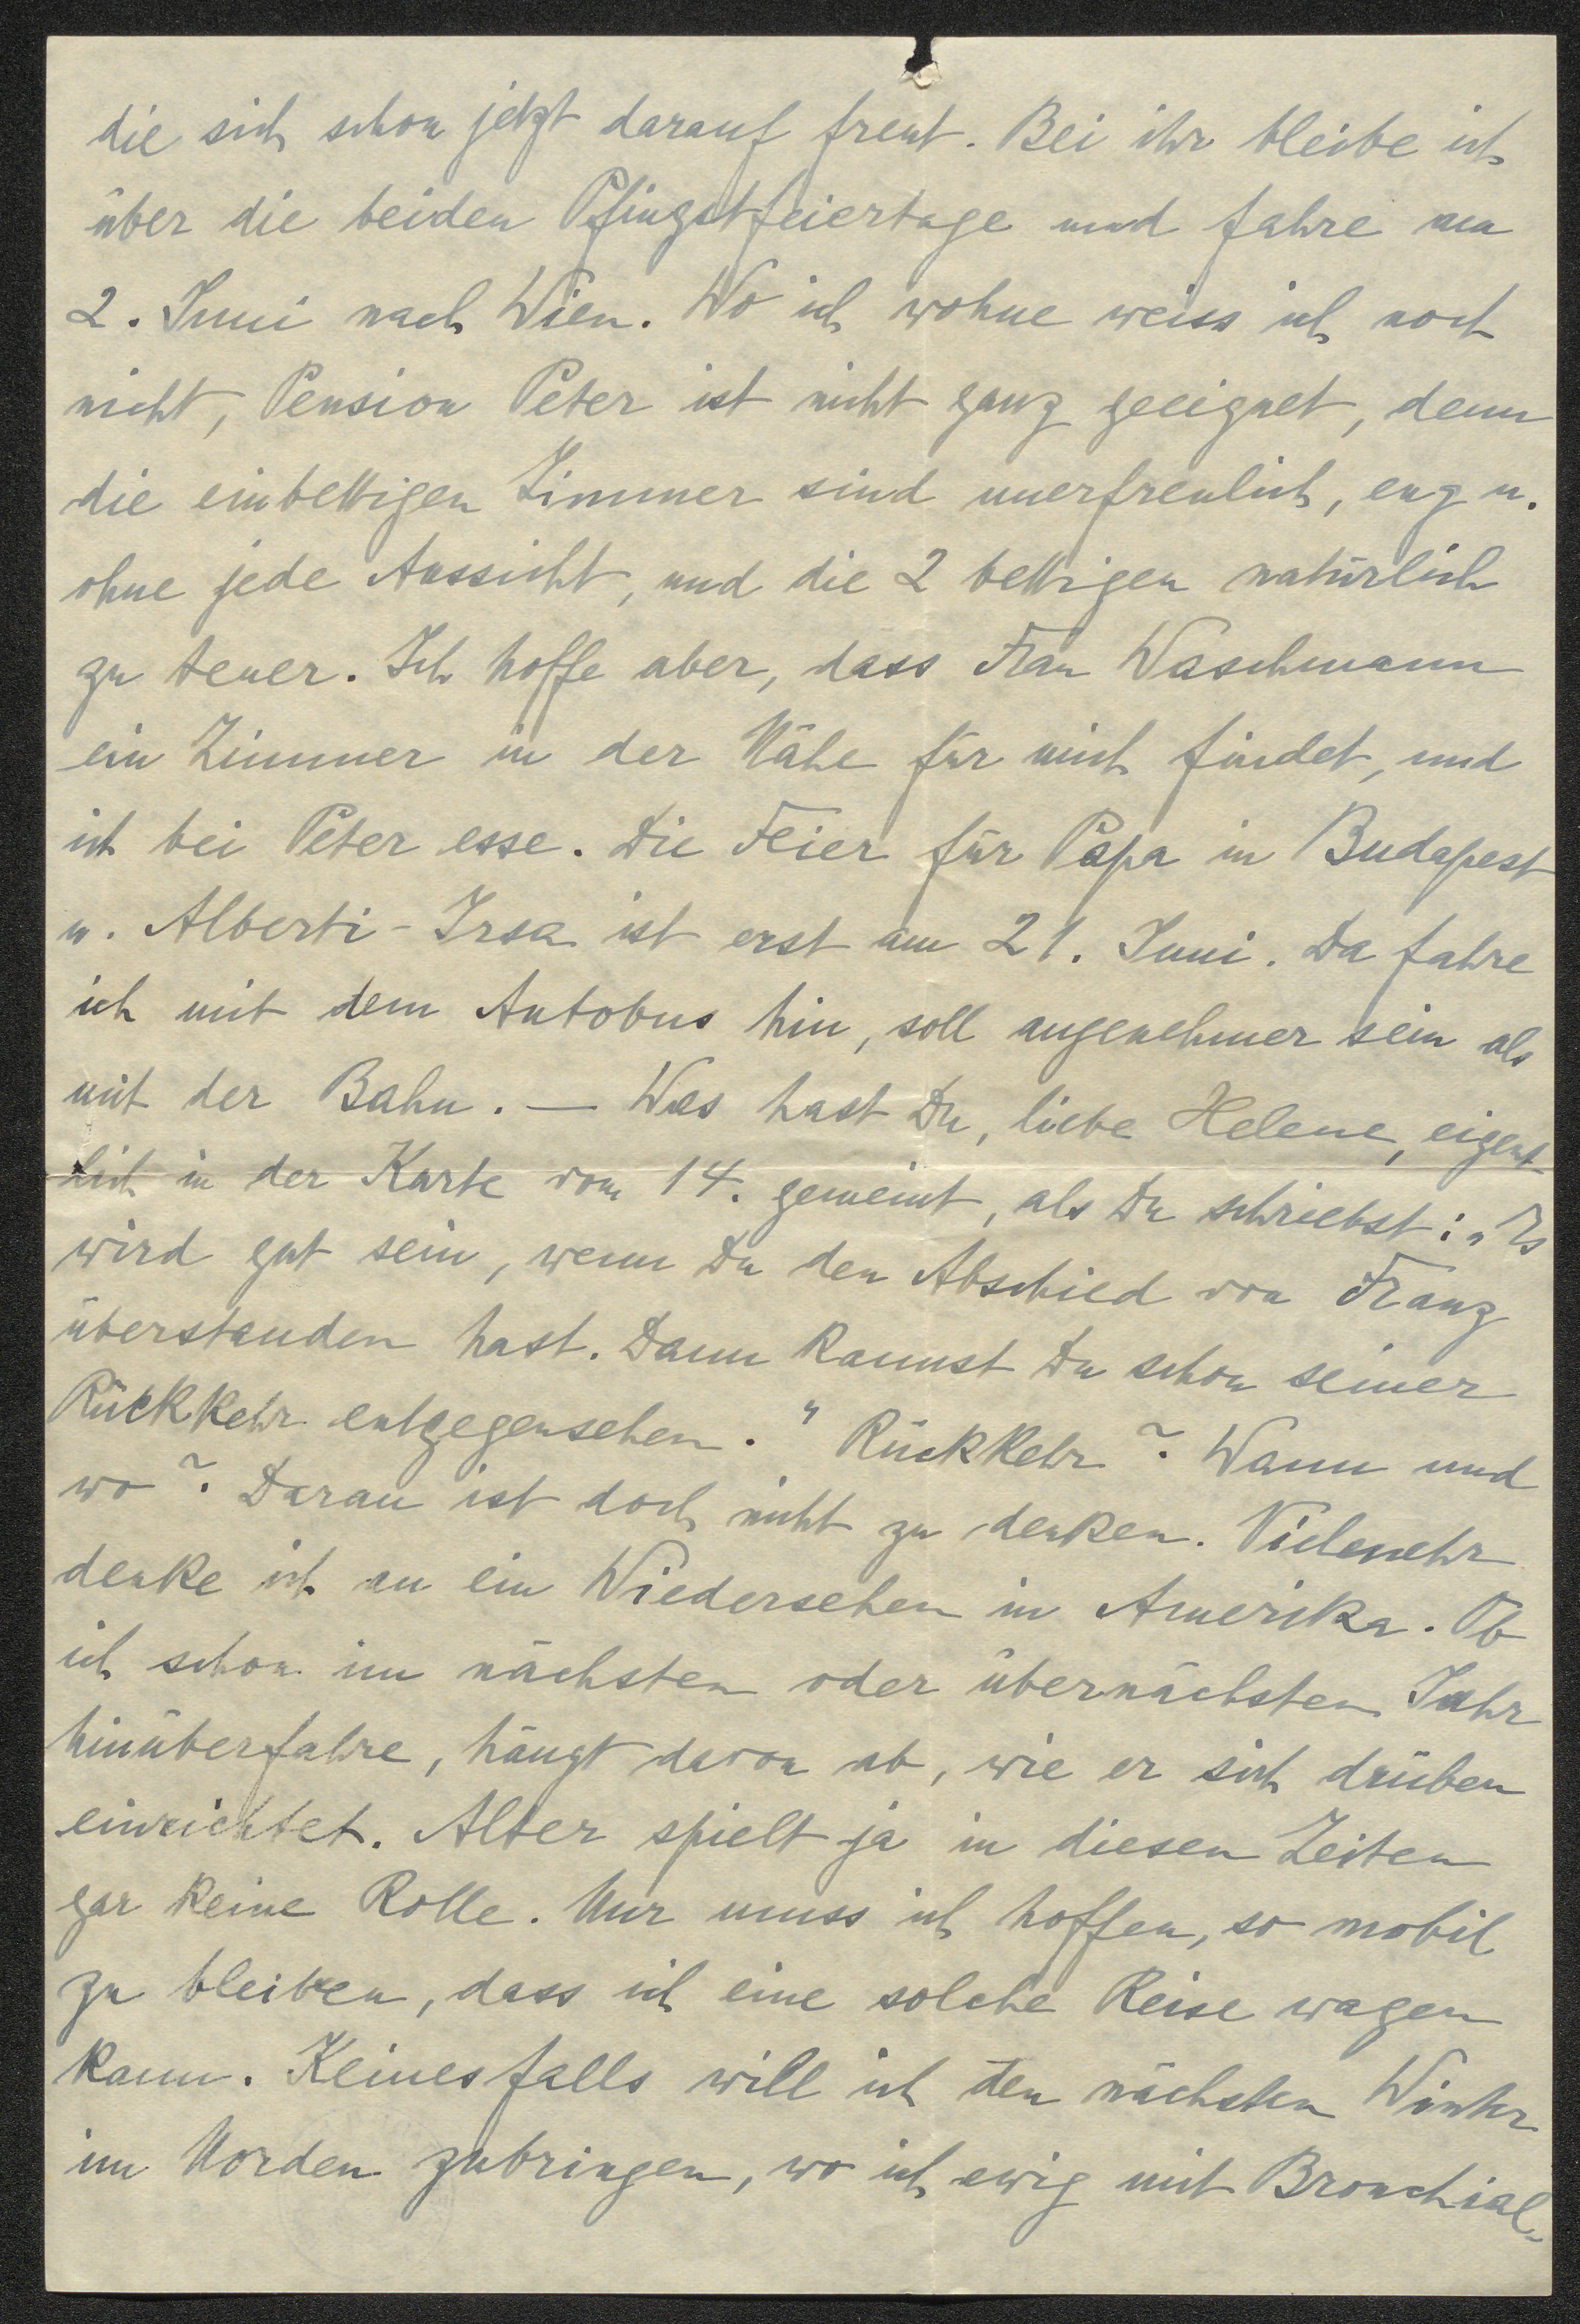 die sich schon jetzt darauf freut. Bei ihr bleibe ich
über die beiden Pfingstfeiertage und fahre am
2. Juni nach Wien. Wo ich wohne weiss ich noch
nicht, Pension Peter ist nicht ganz geeignet, denn
die einbettigen Zimmer sind unerfreulich, eng u.
ohne jede Aussicht, und die 2 bettigen natürlich
zu teuer. Ich hoffe aber, dass Frau Waschmann
ein Zimmer in der Nähe für mich findet, und
ich bei Peter esse. Die Feier für Papa in Budapest
u. Alberti-Irsa ist erst am 21. Juni. Da fahre
ich mit dem Autobus hin, soll angenehmer sein als
mit der Bahn. — Was hast Du, liebe Helene, eigent
lich in der Karte vom 14. gemeint, als Du schriebst: „Es
wird gut sein, wenn Du den Abschied von Franz
überstanden hast. Dann kannst Du schon seiner
Rückkehr entgegensehen." Rückkehr? Wann und
wo? Daran ist doch nicht zu denken. Vielmehr
denke ich an ein Wiedersehen in Amerika. Ob
ich schon im nächsten oder übernächsten Jahr
hinüberfahre, hängt davon ab, wie er sich drüben
einrichtet. Alter spielt ja in diesen Zeiten
gar keine Rolle. Nur muss ich hoffen, so mobil
zu bleiben, dass ich eine solche Reise wagen
kann. Keinesfalls will ich den nächsten Winter
im Norden zubringen, wo ich ewig mit Bronchial-